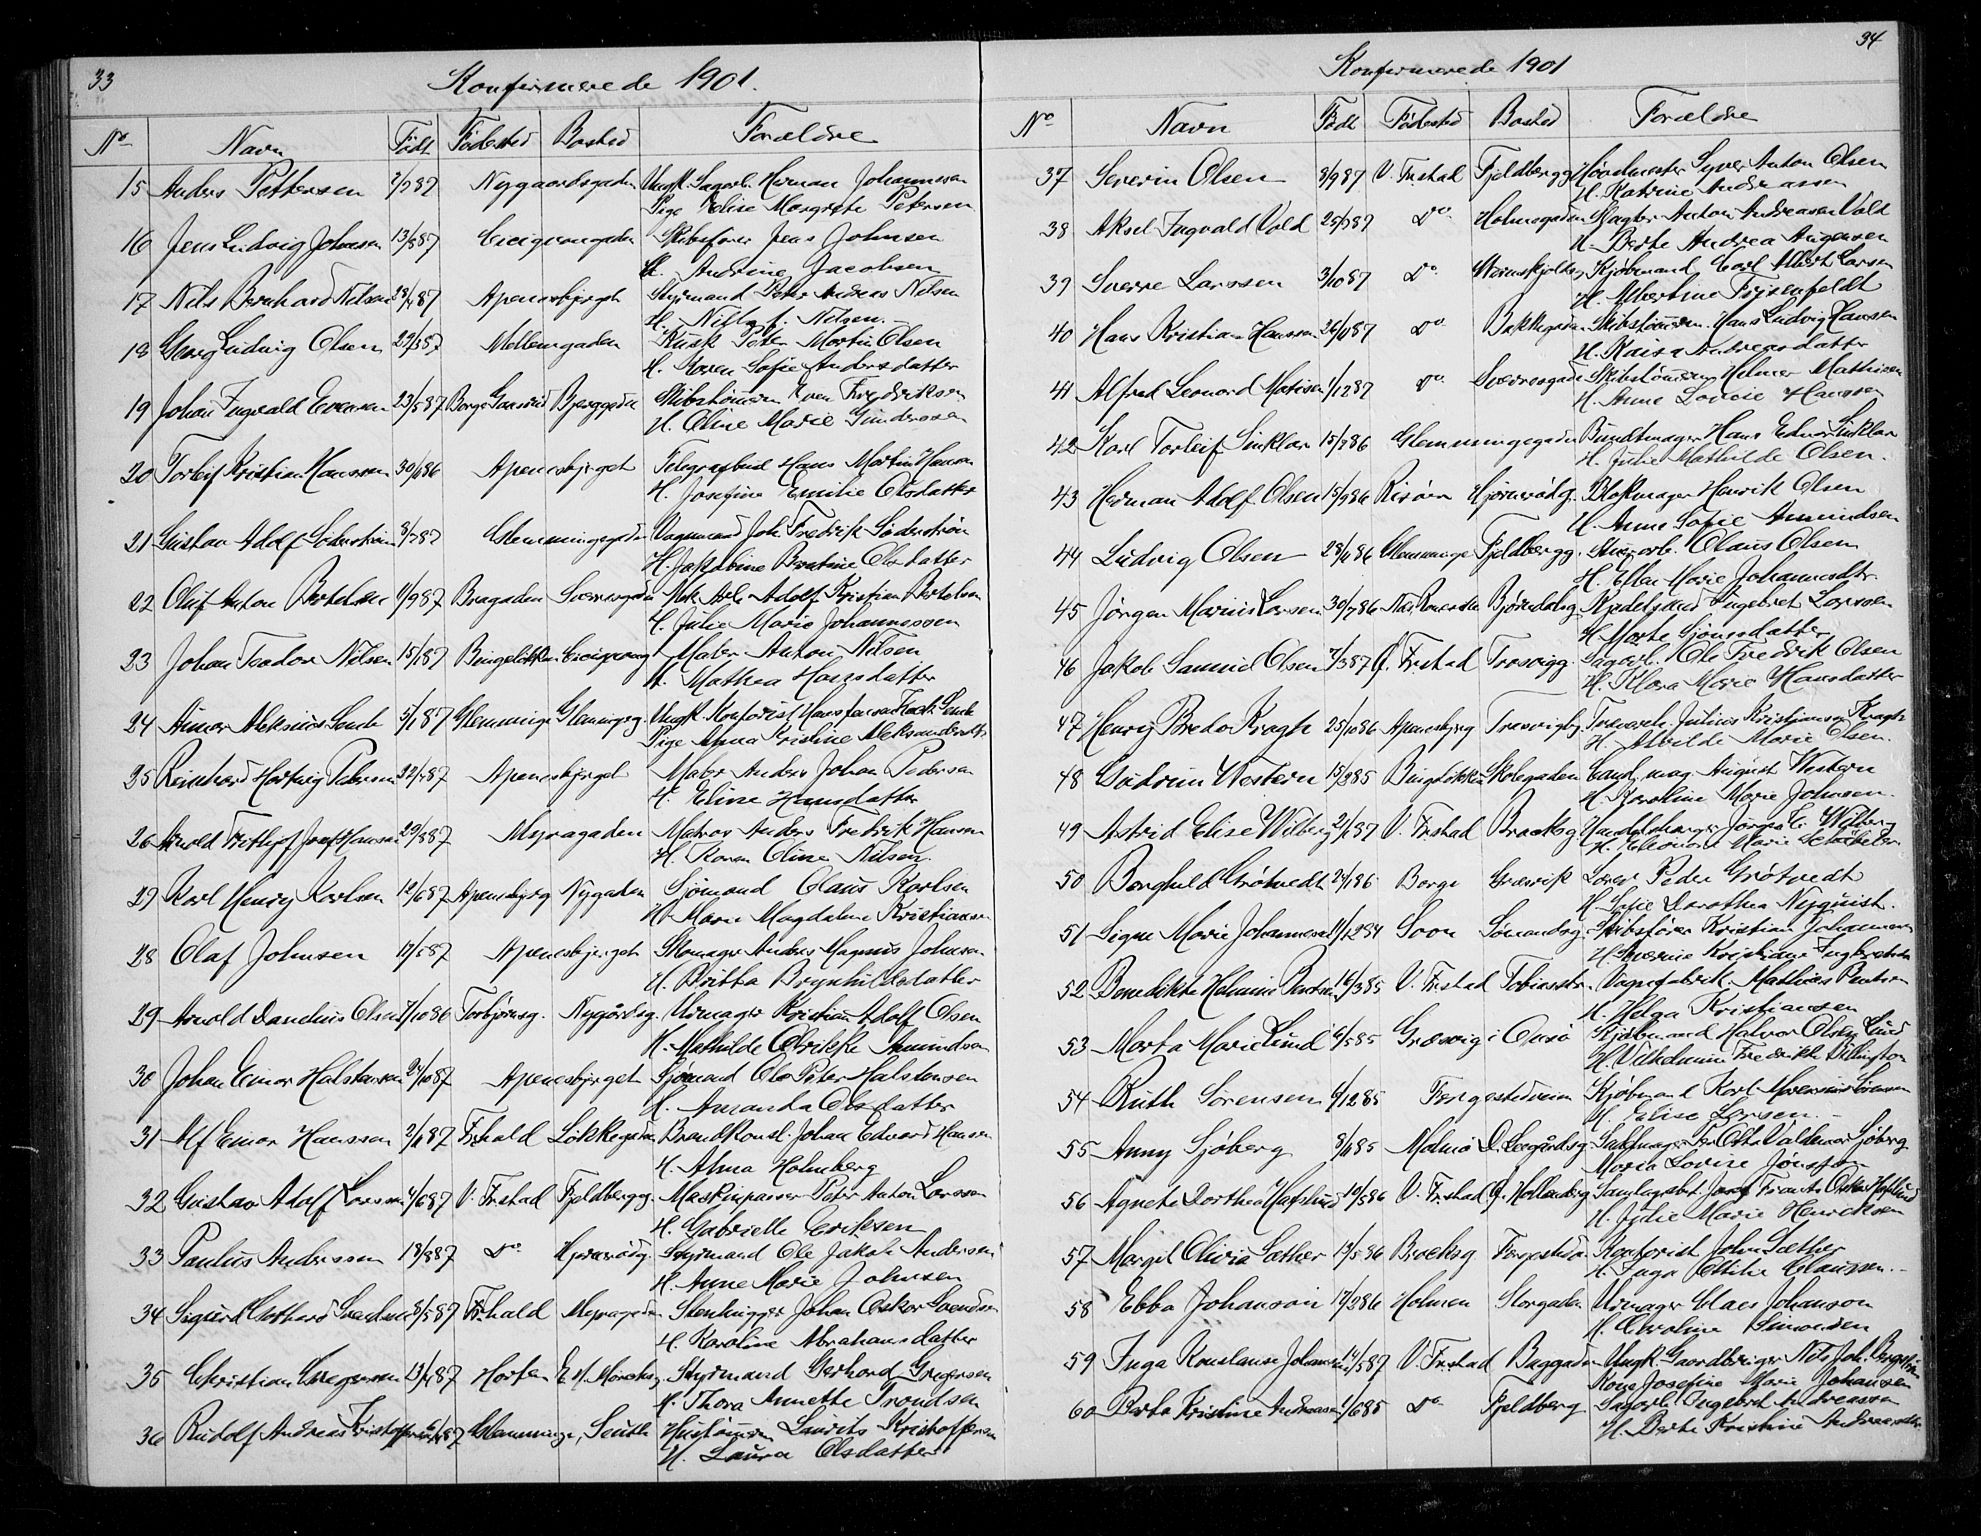 33
Konfirmerede 1901.
No Navn Født Fødested Bosted Forældre
15 Anders Pettersen 2/7 87 Nygaardsgaden Ungk. Sagarb. Herman Johannesen
Pige Elise Margrethe Petersen
16 Jens Ludvig Johnsen 13/8 87 Cicignongaden Skibsfører Jens Johnsen
H. Andrine Jacobsen
17 Nils Bernhard Nilsen 28/4 87 Apenesbjerget Styrmand Peter Andreas Nilsen
H. Nilsen
18 Georg Ludvig Olsen Mellemgaden Kusk Peter Martin Olsen
H. Karen Sofie Andersdatter
19 Johan Ingvald Evensen 23/5 87 Borge Bjerggaden Skibstømm. Even Fredriksen
H. Oline Marie Gundersen
20 Torleif Kristian Hanssen 30/1 86 Apenesbjerget Telegrafbud Hans Martin Hansen
H. Josefine Emilie Olsdatter
21 Gustav Adolf Söderström 3/7 87 Glemmingegaden Vognmand Joh. Fredrik Söderström
H. Jakobine Beatine Olsdatter
22 Oluf Anton Bertelsen 11/9 87 Bragaden Sverresgaden Mek. Arb. Adolf Kristian Bertelsen
H. Julie Marie Johannessen
23 Johan Teodor Nilsen 15/1 87 Bingeløkken Cicignong. Maler Anton Nilsen
H. Mathea Hansdatter
24 Einar Aleksius 5/1 87 Glemminge Glemmingeg. Ungk. Kontorist Hans
Pige Anna Kristine Aleksandersdtr
25 Reinhard Hartvig Pedersen 22/4 87 Apenesbjerget Maler Anders Johan Pedersen
H. Elise Hansdatter
26 Arnold Frithjof Josef Hansen 29/8 87 Myragaden Matros Anders Fredrik Hansen
H. Karen Oline Nilsen
27 Karl Henry Karlsen 12/6 87 Apenesbjerg Nygaden Sjømand Claus Karlsen
H. Maren Magdalene Kristiansen
28 Olaf Johnsen 17/5 87 Apenesbjerget Skomager Anders Magnus Johnsen
H. Britta Brynhildsdatter
29 Arnold Danelius Olsen 7/10 86 Torbjørnsg. Nygårdsg. Urmager Kristian Adolf Olsen
H. Mathilde Olrikke Amundsen
30 Johan Einar Halstensen 24/10 87 Apenesbjerget Sjømand Ole Peter Halstensen
H. Amanda Olsdatter
31 Alf Einar Hanssen 2/11 87 Fr.hald Løkkegaden Brandkonst. Johan Edvard Hansen
H. Alma Holmberg
32 Gustav Adolf Larssen 4/6 87 V. Fr.stad Fjeldbergg. Maskinpasser Peter Anton Larssen
H. Gabrielle Eriksen
33 Paulus Anderssen 18/8 87 do Styrmand Ole Jakob Andersen
H. Anne Marie Johnsen
34 Sigurd Gothard Svendsen 8/5 87 Fr.hald Myragaden Stenhugger Johan Oskar Svendsen
H. Karoline Abrahamsdatter
35 Christian Gregersen 13/4 87 Horten Styrmand Gerhard Gregersen
H. Thora Annette Trondsen
36 Rudolf Andreas Kristoffersen 87 Glemminge, Hustømm. Laurits Kristoffersen
H. Laura Olsdatter
34
Konfirmerede 1901
No Navn Født Fødested Bosted Forældre
37 Severin Olsen 8/9 87 V. Fr.stad Fjeldbergg. Syver Anton Olsen
H. Katrine Andreassen
38 Aksel Ingvald Vold 25/7 87 do Holmegaden Anton Andreasen Vold
H. Berte Andrea Aagensen
39 Sverre Larssen 3/10 87 do Kjøbmand Carl Albert Larsen
H. Albertine Frisenfeldt
40 Hans Kristian Hanssen 26/11 87 do Bakkegaden Skibstømm. Hans Ludvig Hansen
H. Kaisa Andreasdatter
41 Alfred Leonard Matisen 1/12 87 do Sverresgaden Skibstømm. Helmer Mathisen
H. Anne Lovise Hansen
42 Karl Torleif Sinklar 15/7 86 Glemmingegaden Bundtmager Hans Edvard Sinklar
H. Julie Mathilde Olsen.
43 Herman Adolf Olsen 15/9 86 Risøen Blokmager Henrik Olsen
H. Anne Sofie Amundsen
44 Ludvig Olsen 28/11 86 Glemminge Fjeldbergg. Claus Olsen
H. Ellen Marie Johannesdtr.
45 Jørgen Marius Larsen 30/7 86 Bjørndalsg. Ingebret Larssen
H. Marte
46 Jakob Samuel Olsen 7/3 87 G. Fr.stad Trosvigg. Sagarb. Ole Fredrik Olsen
H. Klara Marie Hansdatter
47 Henry Bredo Kragh 25/10 86 Apenesbjerg Trosvigbg. Julius Kristiansen Kragh
H. Alvilde Marie Olsen.
48 Gudrun Western 15/2 85 Bingeløkken Skolegaden Cand. mag. August Western
H. Karoline Marie Johnsen.
49 Astrid Elise Wilberg 2/1 87 V. Fr.stad Brocksg. Wilberg
H. Eleonora Marie
50 Borghild Grötvedt 24/1 86 Borge Græsvik Peder Grötvedt
H. Sofie Dorothea Nyquist.
51 Signe Marie Johannesen 11/12 84 Soon Skibsfører Kristian Johannesen
H. Severine Kristiane
52 Benedikte Helmine 14/3 85 V. Fr.stad Tobiasstr. Vognfabrik. Mathias
H. Helga Kristiansen
53 Marta Marie Lund 6/5 85 Græsvig i Onsø Kjøbmand Halvor Olsen Lund
H. Vilhelmine Fredrikke
54 Ruth Sörensen 6/12 85 Færgestedsveien Kjøbmand Karl Sörensen
H. Elise Larsen.
55 Anny Sjöberg 8/11 85 Malmö Per Otto Valdemar Sjöberg
Maria Lovise Jönsson
56 Agnete Dorthea Hafslund 10/5 86 V. Fr.stad Josef Frants Oskar Hafslund
H. Julie Marie Henriksen
57 Margit Olivia Sæther 13/5 86 Brocksg. Færgestedsv. Kontorist John Sæther
H. Inga Ottilie Claussen.
58 Ebba Johanson 17/2 86 Holmen Storgaden Urmager Claes Johanson
H. Caroline Simonsen
59 Inga Konstanse Johansen 14/5 87 V. Fr.stad Baggaden Ungk. Gaardbruger Nils Joh.
Kone Josefine Marie Johansen
60 Berta Kristine Andreasen 1/6 85 do Fjeldberg Sagarb. Ingebret Andreassen
H. Berte Kristine Andreasdtr.